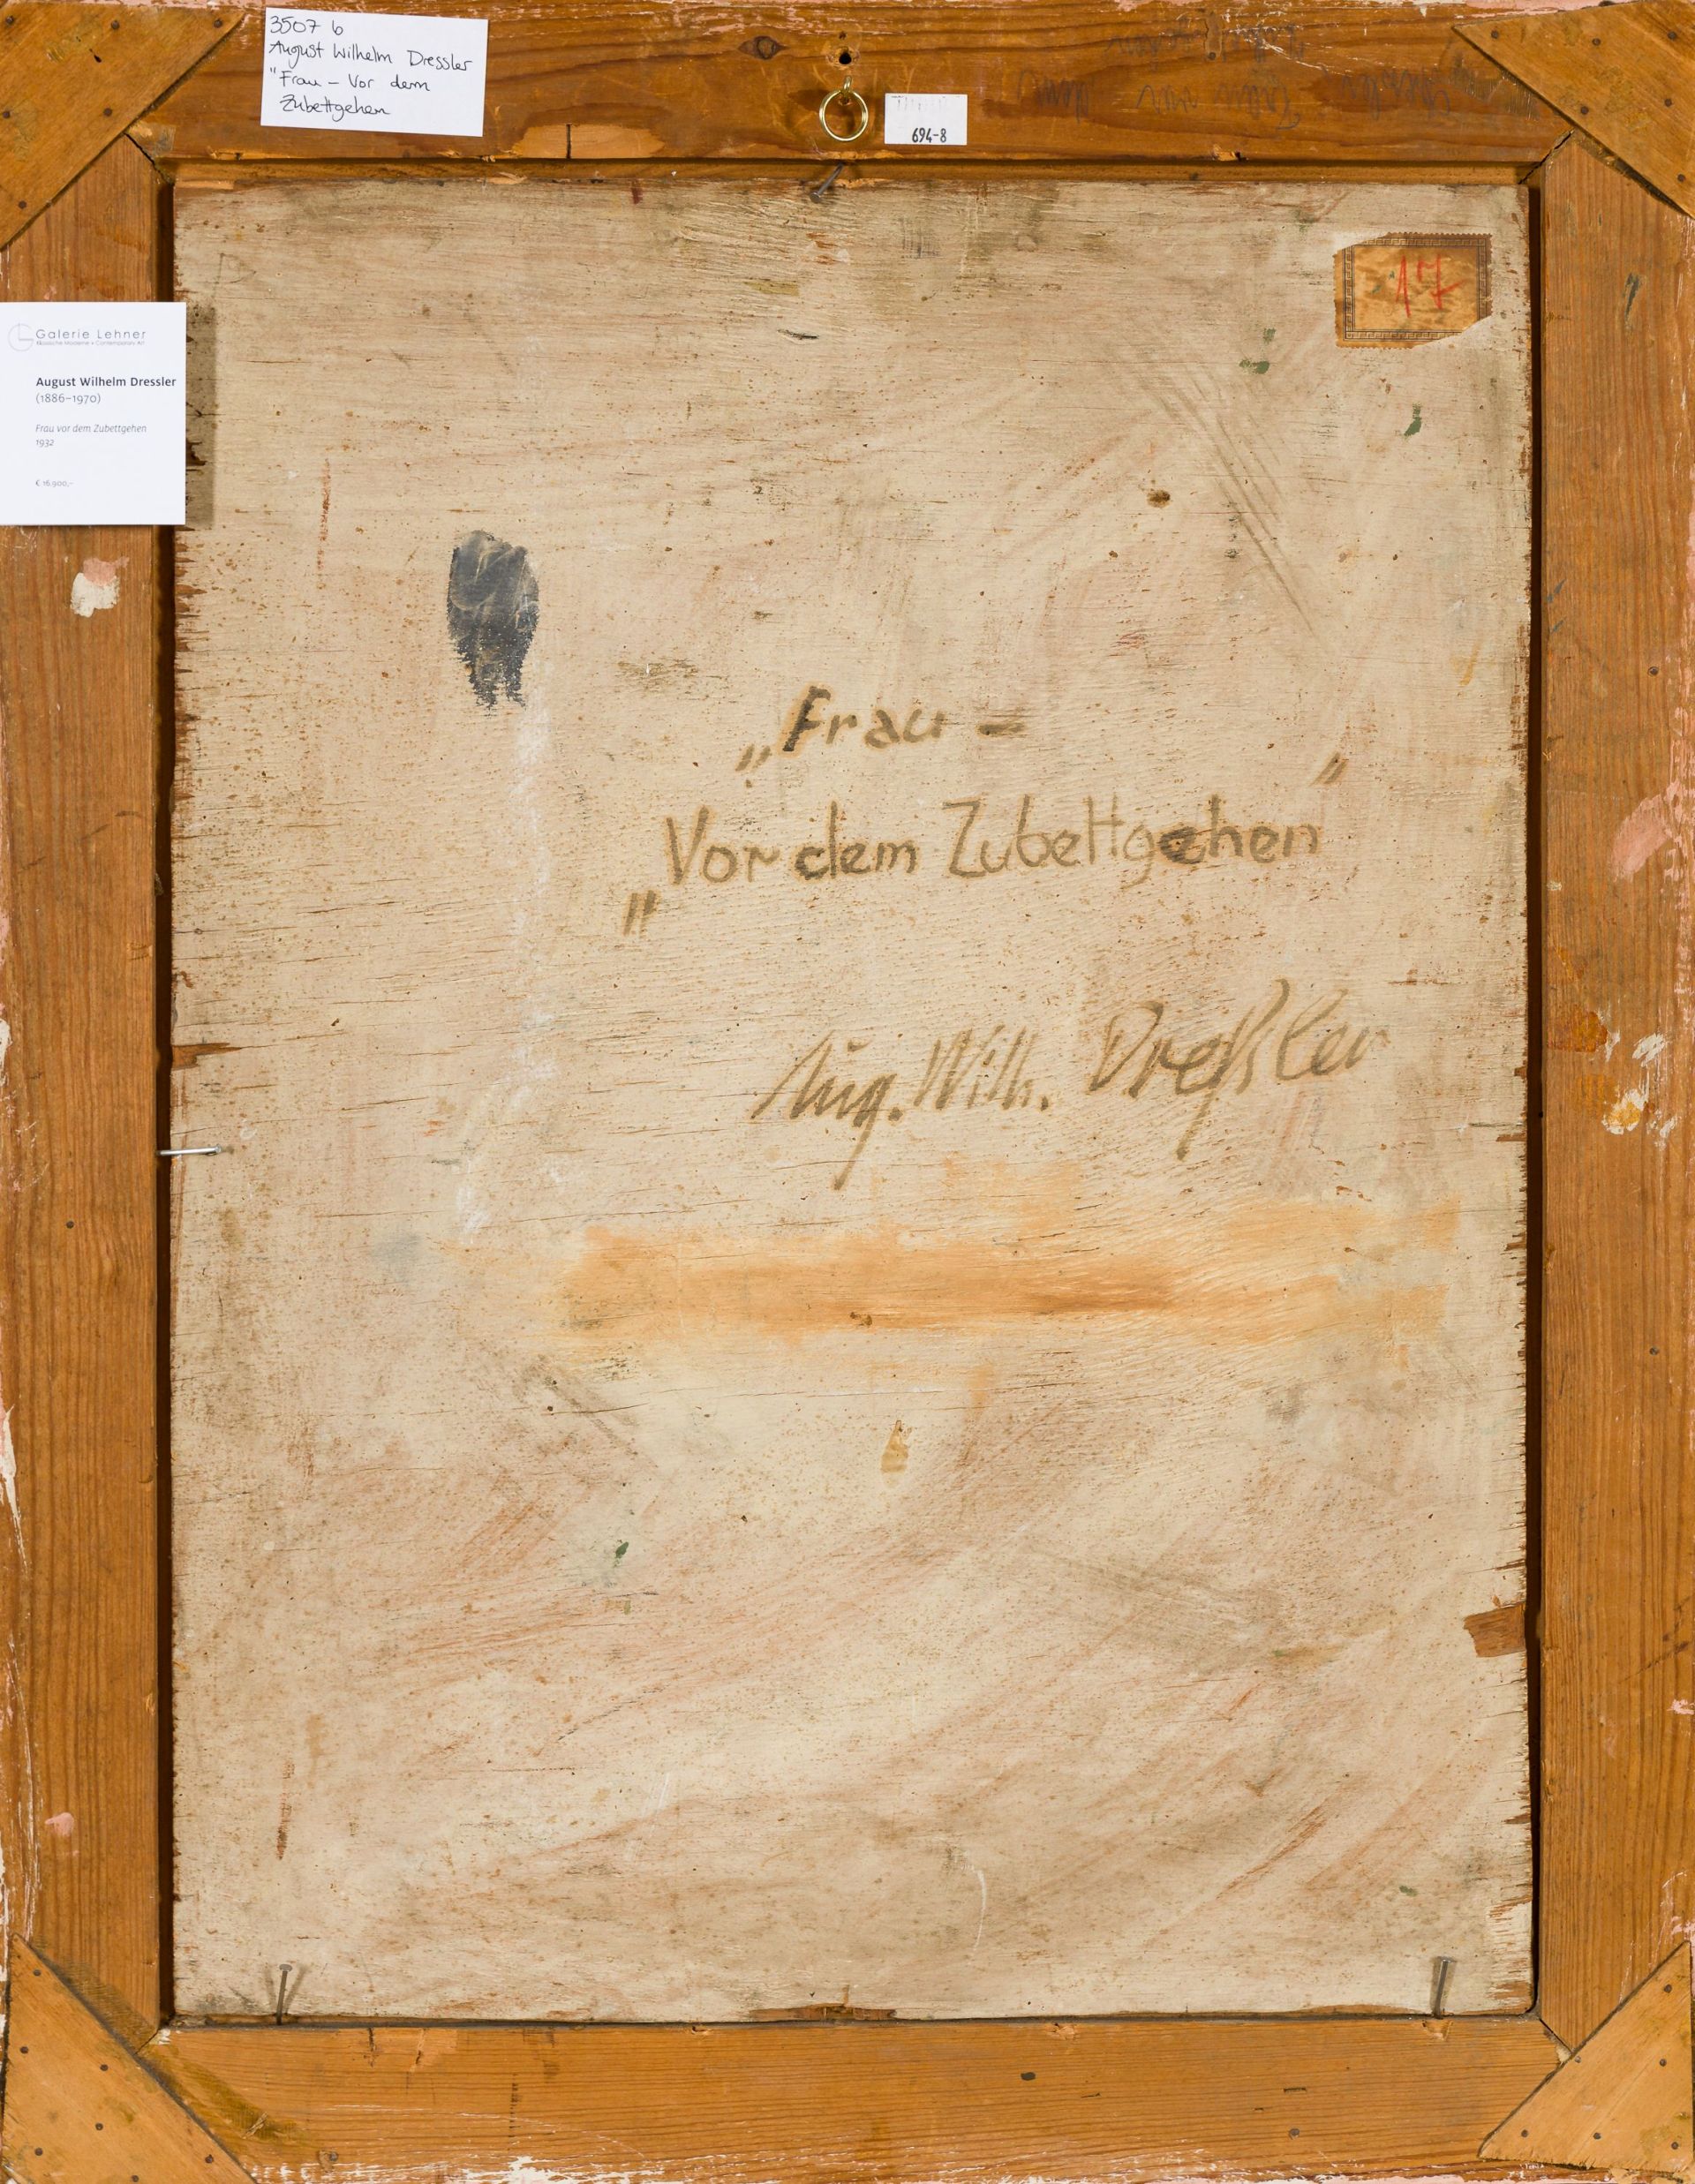 3507 b
August Wilhelm Dressler
"Frau – Vor dem
Zubettgehen
694-8
17
Galerie Lehner
Klassische Moderne + Contemporary Art
August Wilhelm Dressler
(1886–1970)
Frau vor dem Zubettgehen
1932
€ 16.900,–
„Frau –
"
Vor dem Zubettgehen
„
Aug. Wilh. Dreßler